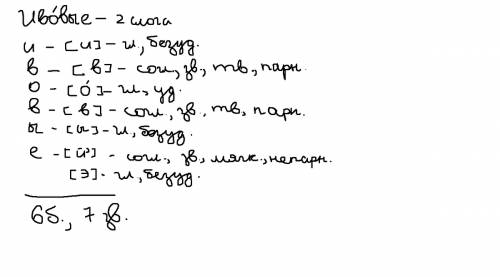 Иво́вые - 2 слога
и - [и] - гл, безуд.
в - [в] - согл, зв, тв, парн.
о - [о́] - гл, уд.
в - [в] - согл, зв, тв, парн.
ы - [ы] - гл, безуд.
е - [й'] - согл., зв, мягк., непарн.
[э] - гл, безуд.
6 б., 7 зв.